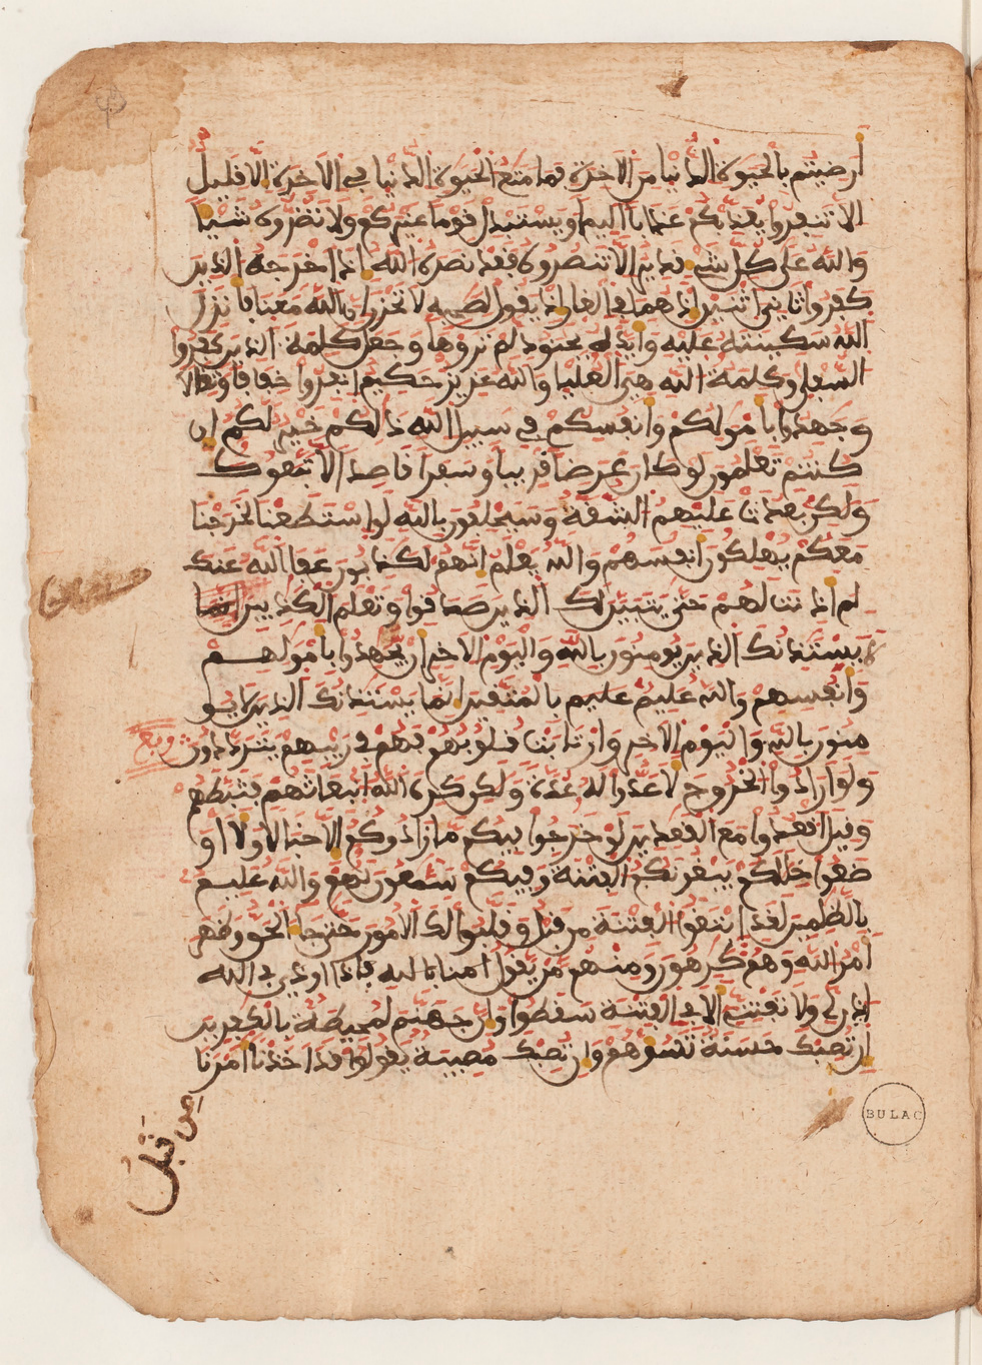 أرضيتم بالحيوة الدنيا من الاخرة فما متع الحيوة الدنيا في الاخرة الا قليل
الا تنفروا يعذبكم عذابا اليما ويستبدل قوما غيركم ولا تضروه شيا
والله على كل شيء قدير الا تنصروه فقد نصره الله اذ اخرجه الذين
كفروا ثاني اثنين اذ هما في الغار اذ يقول لصحبه لا تحزن ان الله معنا فانزل
الله سكينته عليه وايده بجنود لم تروها وجعل كلمة الذين كفروا
السفلى وكلمة الله هي العليا والله عزيز حكيم انفروا خفافا وثقالا
وجهدوا بامولكم وانفسكم في سبيل الله ذلكم خير لكم ان
كنتم تعلمون لو كان عرضا قريبا وسفرا قاصدا لاتبعوك
ولكن بعدت عليهم الشقة وسيحلفون بالله لو استطعنا لخرجنا
معكم يهلكون انفسهم والله يعلم انهم لكذبون عفا الله عنك
لم اذنت لهم حتى يتبين لك الذين صدقوا وتعلم الكذبين
لا يستذنك الذين يومنون بالله واليوم الاخر ان يجهدوا بامولهم
وانفسهم والله عليم عليم بالمتقين انما يستذنك الذين لا يو
منون بالله واليوم الاخر وارتابت قلوبهم فهم في ريبهم يترددون
ربع
ولو ارادوا الخروج لاعدوا له عدة ولكن كره الله انبعاثهم فثبطهم
وقيل اقعدوا مع القعدين لو خرجوا فيكم ما زادوكم الا خبالا ولا او
ضعوا خللكم يبغونكم الفتنة وفيكم سمعون لهم والله عليم
بالظلمين لقد ابتغوا الفتنة من قبل وقلبوا لك الامور حتى جا الحق وظهر
امر الله وهم كرهون ومنهم من يقول
ايذن لي ولا تفتني الا في الفتنة سقطوا وان جهنم لمحيطة بالكفرين
ان تصبك حسنة تسوهم وان تصبك مصيبة يقولوا قد اخذنا امرنا
من قبل
BULAC